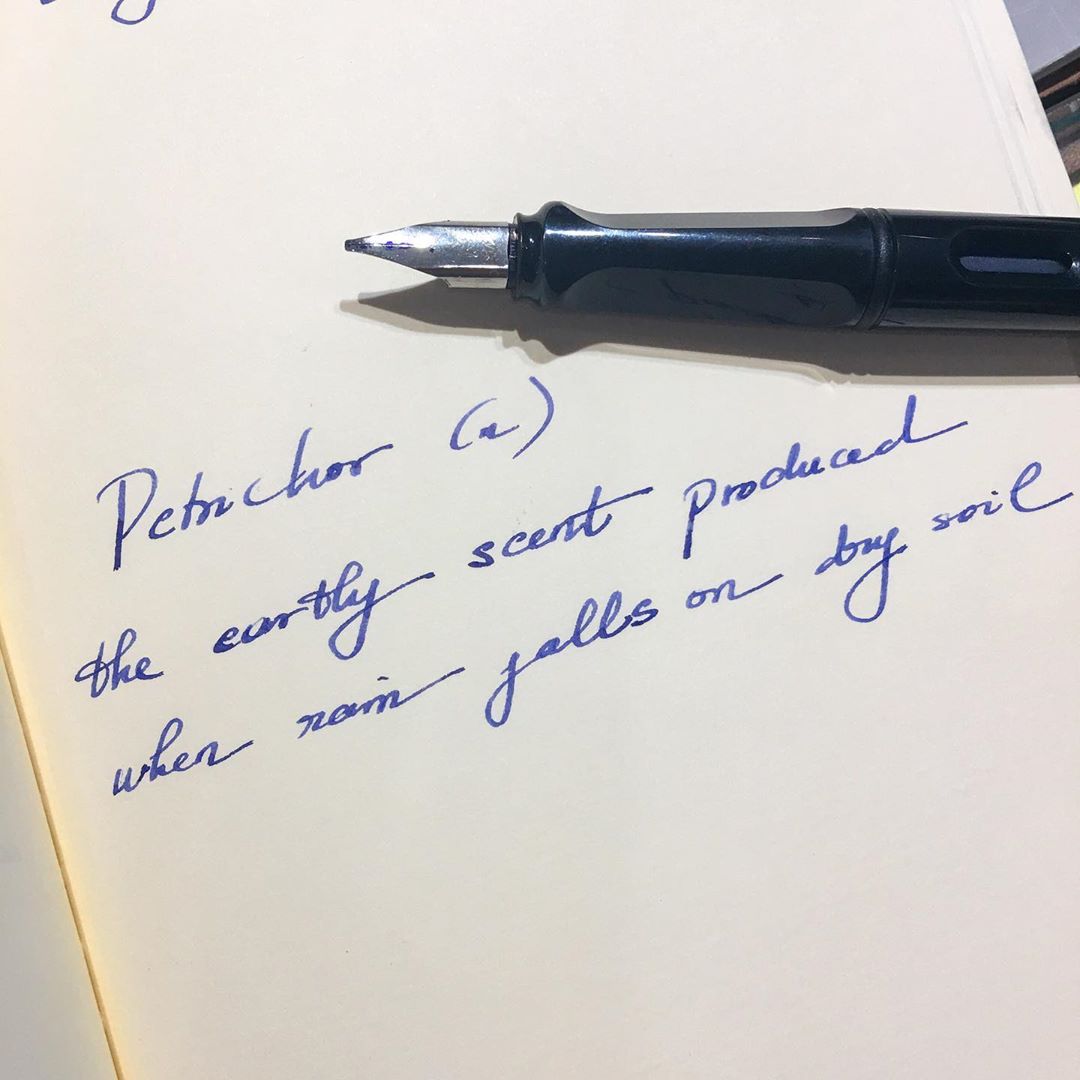 Petrichor (n)
the earthly scent produced
when rain falls on dry soil